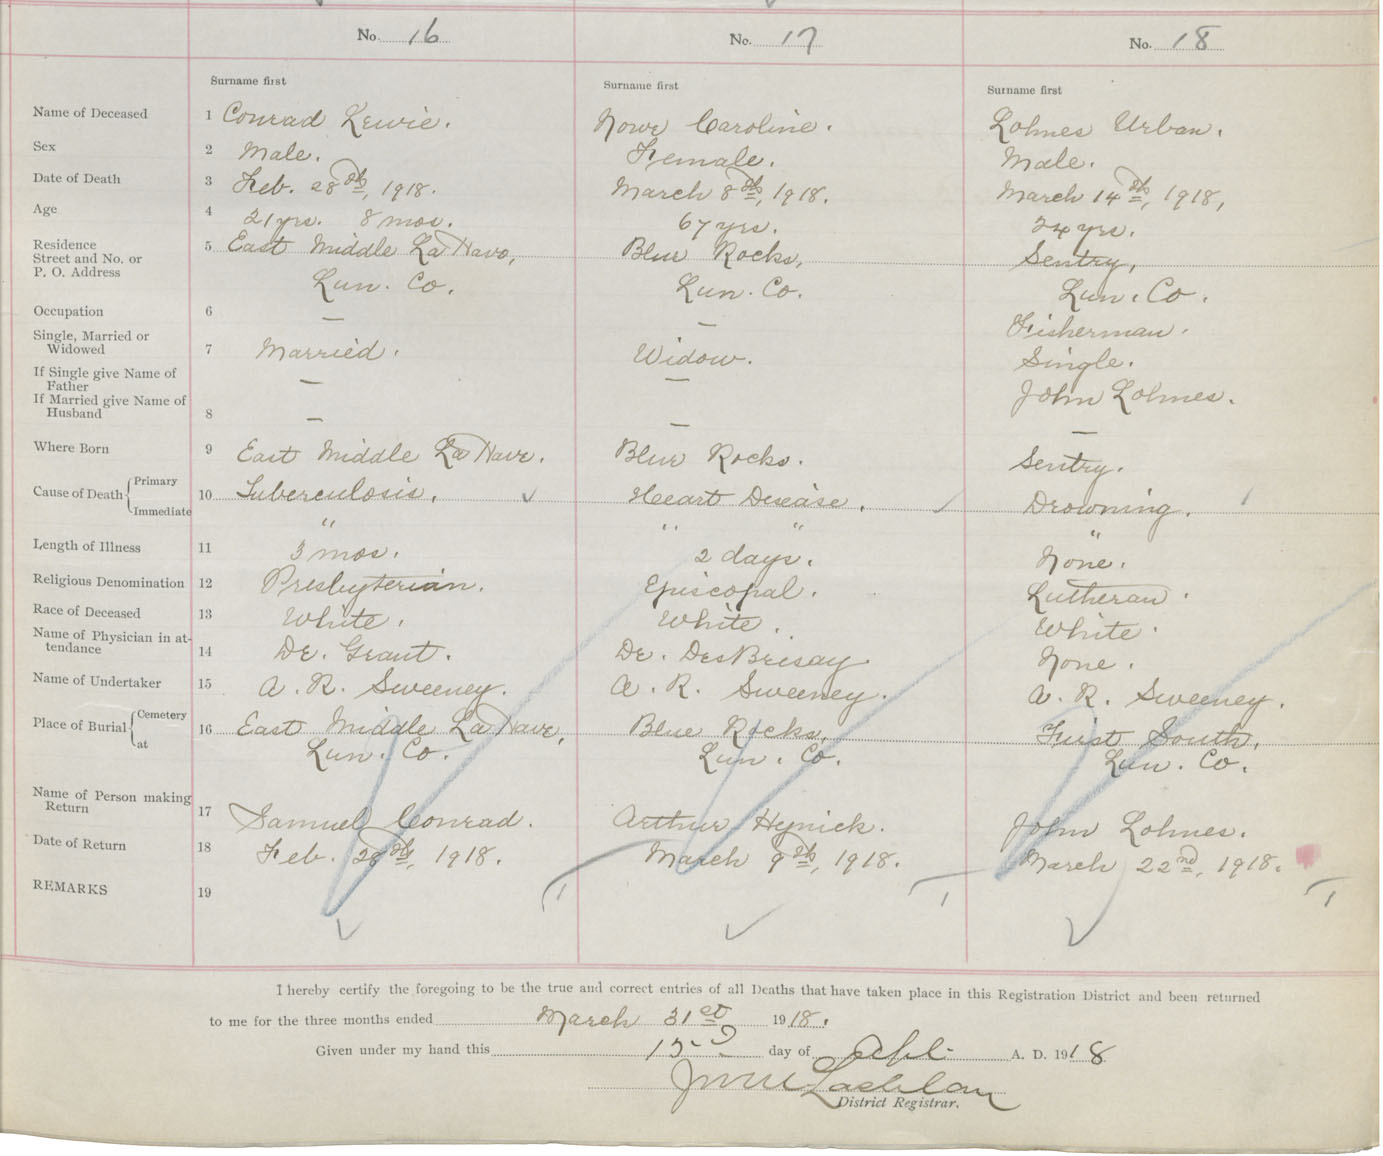 No. 16 No. 17 No. 18
Surname first Surname first Surname first
Name of Deceased 1 Conrad Lewie. Nowe Caroline. Lohnes Urban.
Sex 2 Male. Female. Male.
Date of Death 3 Feb. 28th, 1918. March 8th, 1918. March 14th, 1918,
Age 4 21 yrs. 8 mos. 67 yrs. 24 yrs.
Residence 5 East Middle La Have, Blue Rocks, Sentry,
Street and No. or
P. O. Address Lun. Co. Lun. Co. Lun. Co.
Occupation 6 — — Fisherman.
Single, Married or
Widowed 7 Married. Widow. Single.
If Single give Name of
Father — — John Lohnes.
If Married give Name of
Husband 8 — — —
Where Born 9 East Middle La Have. Blue Rocks. Sentry.
Cause of Death { Primary
10 Tuberculosis. Heart Disease. Drowning.
Immediate " " " "
Length of Illness 11 3 mos. 2 days. None.
Religious Denomination 12 Presbyterian. Episcopal. Lutheran.
Race of Deceased 13 White. White. White.
Name of Physician in at-
tendance 14 Dr. Grant. Dr. DesBrisay None.
Name of Undertaker 15 A. R. Sweeney. A. R. Sweeney. A. R. Sweeney.
Place of Burial { Cemetery
16 East Middle La Have, Blue Rocks, First South,
at Lun. Co. Lun. Co. Lun. Co.
Name of Person making
Return 17 Samuel Conrad. Arthur Hynick. John Lohnes.
Date of Return 18 Feb. 28th, 1918. March 9th, 1918. March 22nd, 1918.
REMARKS 19
I hereby certify the foregoing to be the true and correct entries of all Deaths that have taken place in this Registration District and been returned
to me for the three months ended March 31st 1918.
Given under my hand this 15 day of Apl. A. D. 1918
District Registrar.